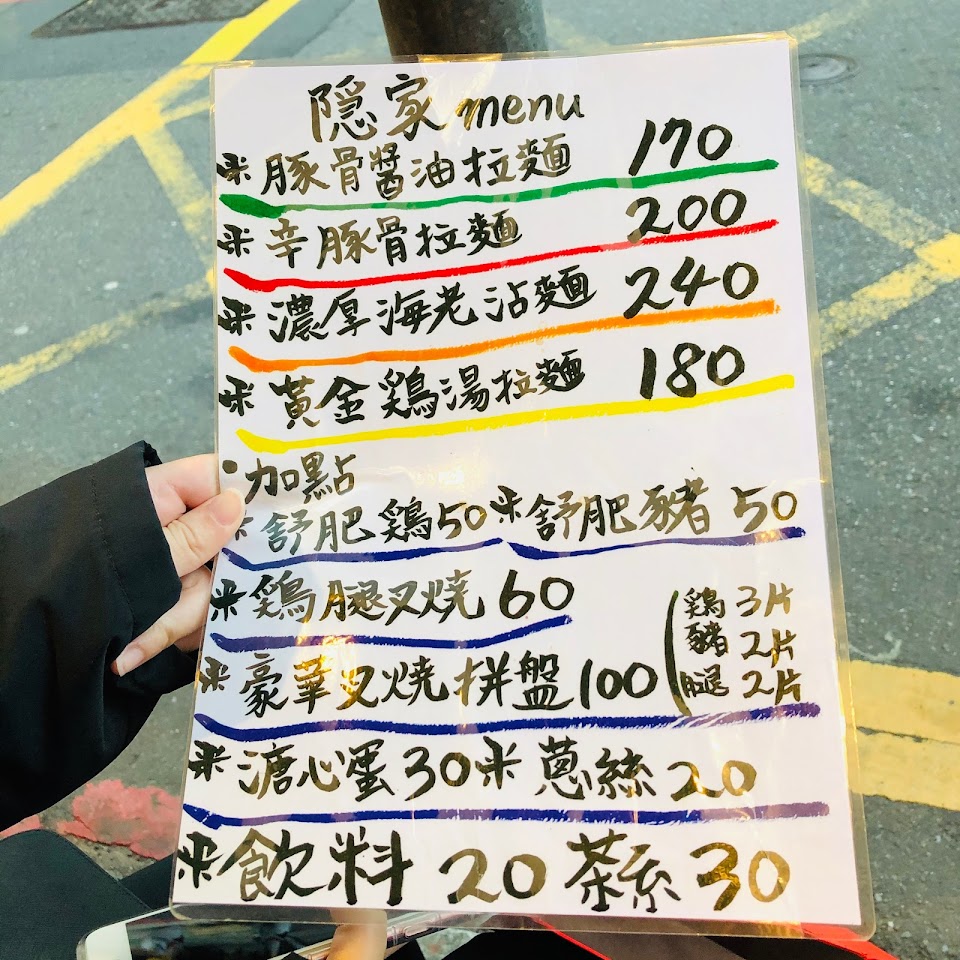 隠家menu
※豚骨醬油拉麵 170
※辛豚骨拉麵 200
※濃厚海老沾麵 240
※黃金鶏湯拉麵 180
•加點
※舒肥鶏50 ※舒肥豬 50
※鶏腿叉燒 60
鶏 3片
豬 2片
腿 2片
※豪華叉燒拼盤100
※溏心蛋30 ※蔥絲 20
※飲料 20 茶系 30